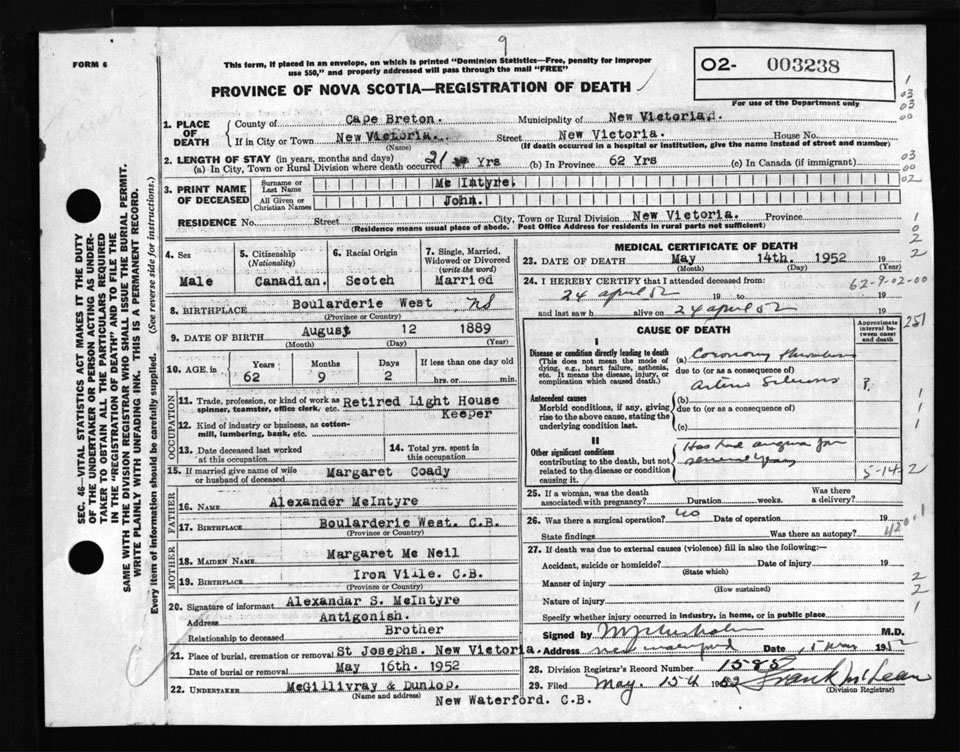 9
FORM 6
This form, if placed in an envelope, on which is printed "Dominion Statistics—Free, penalty for improper
use $50," and properly addressed will pass through the mail "FREE"
PROVINCE OF NOVA SCOTIA—REGISTRATION OF DEATH
02- 003238
For use of the Department only
SEC. 46—VITAL STATISTICS ACT MAKES IT THE DUTY
OF THE UNDERTAKER OR PERSON ACTING AS UNDER-
TAKER TO OBTAIN ALL THE PARTICULARS REQUIRED
IN THE "REGISTRATION OF DEATH" AND TO FILE THE
SAME WITH THE DIVISION REGISTRAR WHO SHALL ISSUE THE BURIAL PERMIT.
WRITE PLAINLY WITH UNFADING INK. THIS IS A PERMANENT RECORD.
Every item of information should be carefully supplied. (See reverse side for instructions.)
1. PLACE OF DEATH
County of Cape Breton. Municipality of New Victoria
If in City or Town New Victoria. Street New Victoria. House No.
(Name) (If death occurred in a hospital or institution, give the name instead of street and number)
2. LENGTH OF STAY (in years, months and days)
(a) In City, Town or Rural Division where death occurred 21 Yrs (b) In Province 62 Yrs (c) In Canada (if immigrant)
3. PRINT NAME OF DECEASED
Surname or Last Name Mc Intyre.
All Given or Christian Names John.
RESIDENCE No. Street City, Town or Rural Division New Victoria. Province
(Residence means usual place of abode. Post Office Address for residents in rural parts not sufficient)
4. Sex Male
5. Citizenship (Nationality) Canadian.
6. Racial Origin Scotch
7. Single, Married, Widowed or Divorced (write the word) Married
8. BIRTHPLACE Boularderie West NS
(Province or Country)
9. DATE OF BIRTH August 12 1889
(Month) (Day) (Year)
10. AGE in Years 62 Months 9 Days 2 If less than one day old hrs. or min.
OCCUPATION
11. Trade, profession, or kind of work as spinner, teamster, office clerk, etc. Retired Light House Keeper
12. Kind of industry or business, as cotton-mill, lumbering, bank, etc.
13. Date deceased last worked at this occupation
14. Total yrs. spent in this occupation
15. If married give name of wife or husband of deceased Margaret Coady
FATHER
16. NAME Alexander McIntyre
17. BIRTHPLACE Boularderie West. C.B.
(Province or Country)
MOTHER
18. MAIDEN NAME Margaret Mc Neil
19. BIRTHPLACE Iron Ville. C.B.
(Province or Country)
20. Signature of informant Alexandar S. McIntyre
Address Antigonish.
Relationship to deceased Brother
21. Place of burial, cremation or removal St Josephs. New Victoria.
Date of burial or removal May 16th. 1952
22. UNDERTAKER McGillivray & Dunlop.
(Name and address)
New Waterford. C.B.
MEDICAL CERTIFICATE OF DEATH
23. DATE OF DEATH May 14th. 1952 19
(Month) (Day) (Year)
24. I HEREBY CERTIFY that I attended deceased from: 62-9-02-00
24 april 52 19 to 19
and last saw h alive on 24 april 52 19
CAUSE OF DEATH
Approximate interval between onset and death
251
I
Disease or condition directly leading to death
(This does not mean the mode of dying, e.g., heart failure, asthenia, etc. It means the disease, injury, or complication which caused death.)
(a) Coronary thrombosis
due to (or as a consequence of)
Arterio Sclerosis
Antecedent causes
Morbid conditions, if any, giving rise to the above cause, stating the underlying condition last.
(b)
due to (or as a consequence of)
(c)
II
Other significant conditions
contributing to the death, but not related to the disease or condition causing it.
Has had angina for
several years
5-14-2
25. If a woman, was the death associated with pregnancy? Duration weeks. Was there a delivery?
26. Was there a surgical operation? no Date of operation 19
State findings Was there an autopsy? 420.1
27. If death was due to external causes (violence) fill in also the following:—
Accident, suicide or homicide? Date of injury 19
(State which)
Manner of injury
(How sustained)
Nature of injury
Specify whether injury occurred in industry, in home, or in public place
Signed by M.D.
Address New Waterford Date, 15 May 1952
28. Division Registrar's Record Number 1585
29. Filed May. 15th 1952 Frank McLean
(Division Registrar)